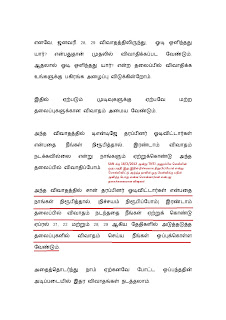 எனவே, ஜனவரி 28, 29 விவாதத்திலிருந்து ஓடி ஒளிந்தது
யார்? என்பதுதான் முதலில் விவாதிக்கப்பட வேண்டும்.
ஆதலால் ஓடி ஒளிந்தது யார்? என்ற தலைப்பில் விவாதிக்க
உங்களுக்கு பகிரங்க அழைப்பு விடுக்கின்றோம்.
இதில் ஏற்படும் முடிவுகளுக்கு ஏற்பவே மற்ற
தலைப்புகளுக்கான விவாதம் அமைய வேண்டும்.
அந்த விவாதத்தில் டிஎன்டிஜே தரப்பினர் ஓடிவிட்டார்கள்
என்பதை நீங்கள் நிரூபித்தால், இரண்டாம் விவாதம்
நடக்கவில்லை என்று நாங்களும் ஏற்றுக்கொண்டு அந்த
தலைப்பில் விவாதிப்போம்.
அந்த விவாதத்தில் சான் தரப்பினர் ஓடிவிட்டார்கள் என்பதை
நாங்கள் நிரூபித்தால், (நிச்சயம் நிரூபிப்போம்) இரண்டாம்
தலைப்பில் விவாதம் நடந்ததை நீங்கள் ஏற்றுக் கொண்டு
ஏப்ரல் 21, 22 மற்றும் 28, 29 ஆகிய தேதிகளில் அடுத்தடுத்த
தலைப்புகளில் விவாதம் செய்ய நீங்கள் ஒப்புக்கொள்ள
வேண்டும்.
அதைத்தொடர்ந்து நாம் ஏற்கனவே போட்ட ஒப்பந்தத்தின்
அடிப்படையில் இதர விவாதங்கள் நடத்தலாம்.